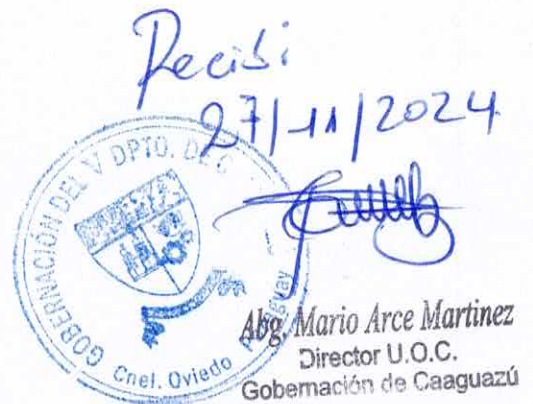 Recibi
27/11/2024
GOBERNACIÓN DEL V DPTO. DE C
Cnel. Oviedo Paraguay
Abg. Mario Arce Martinez
Director U.O.C.
Gobernación de Caaguazú